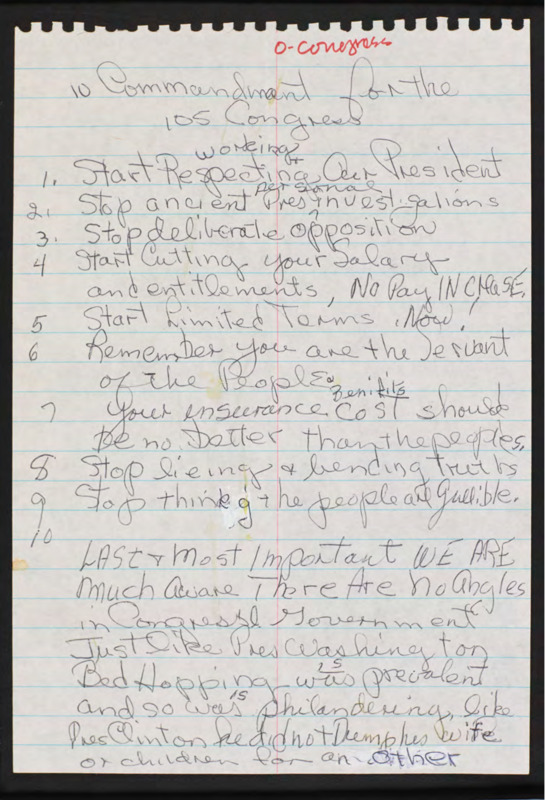 O-congress
10 Commandment for the
105 Congress
working +
1. Start Respecting Our President
personal
2. Stop ancient Pres investigations
3. Stop deliberate opposition
4 Start Cutting your Salary
and entitlements, No Pay INCREASE.
5 Start Limited Terms Now!
6 Remember you are the Servant
of the People.
Benifits
7 your insurance cost should
be no better than the peoples,
8 Stop lieing & bending truths
9 Stop thinkg the people are Gullible.
10
LAST & Most Important WE ARE
Much Aware There Are No Angles
in Congress & Government
Just like Pres Washington
Bed Hopping was is prevalent
and so was is philandering, like
Pres Clinton he did not Dump his wife
or children for another